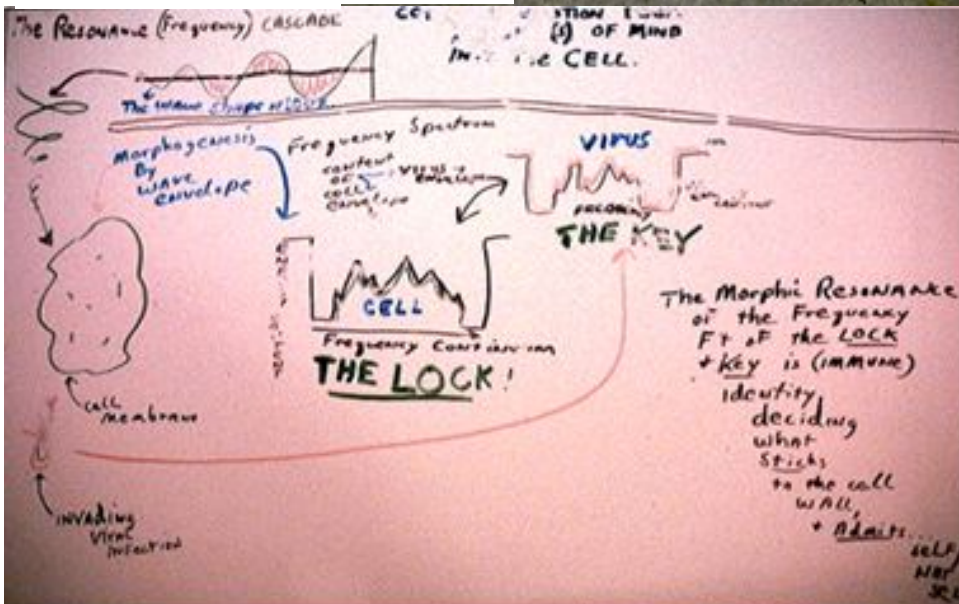 The Resonance (Frequency) CASCADE
(s) OF MIND
CELL.
The wave shape
Morphogenesis
By
wave
envelope
Frequency Spectrum
content
OF
cell
envelope
Virus
envelope
VIRUS
THE KEY
CELL
Frequency Continuum
THE LOCK!
cell
membrane
INVADING
Viral
infection
The Morphic Resonance
of the Frequency
Ft of the LOCK
+ Key is (immune)
Identity
deciding
what
Sticks
to the cell
wall,
+ Admits...
self/
Not